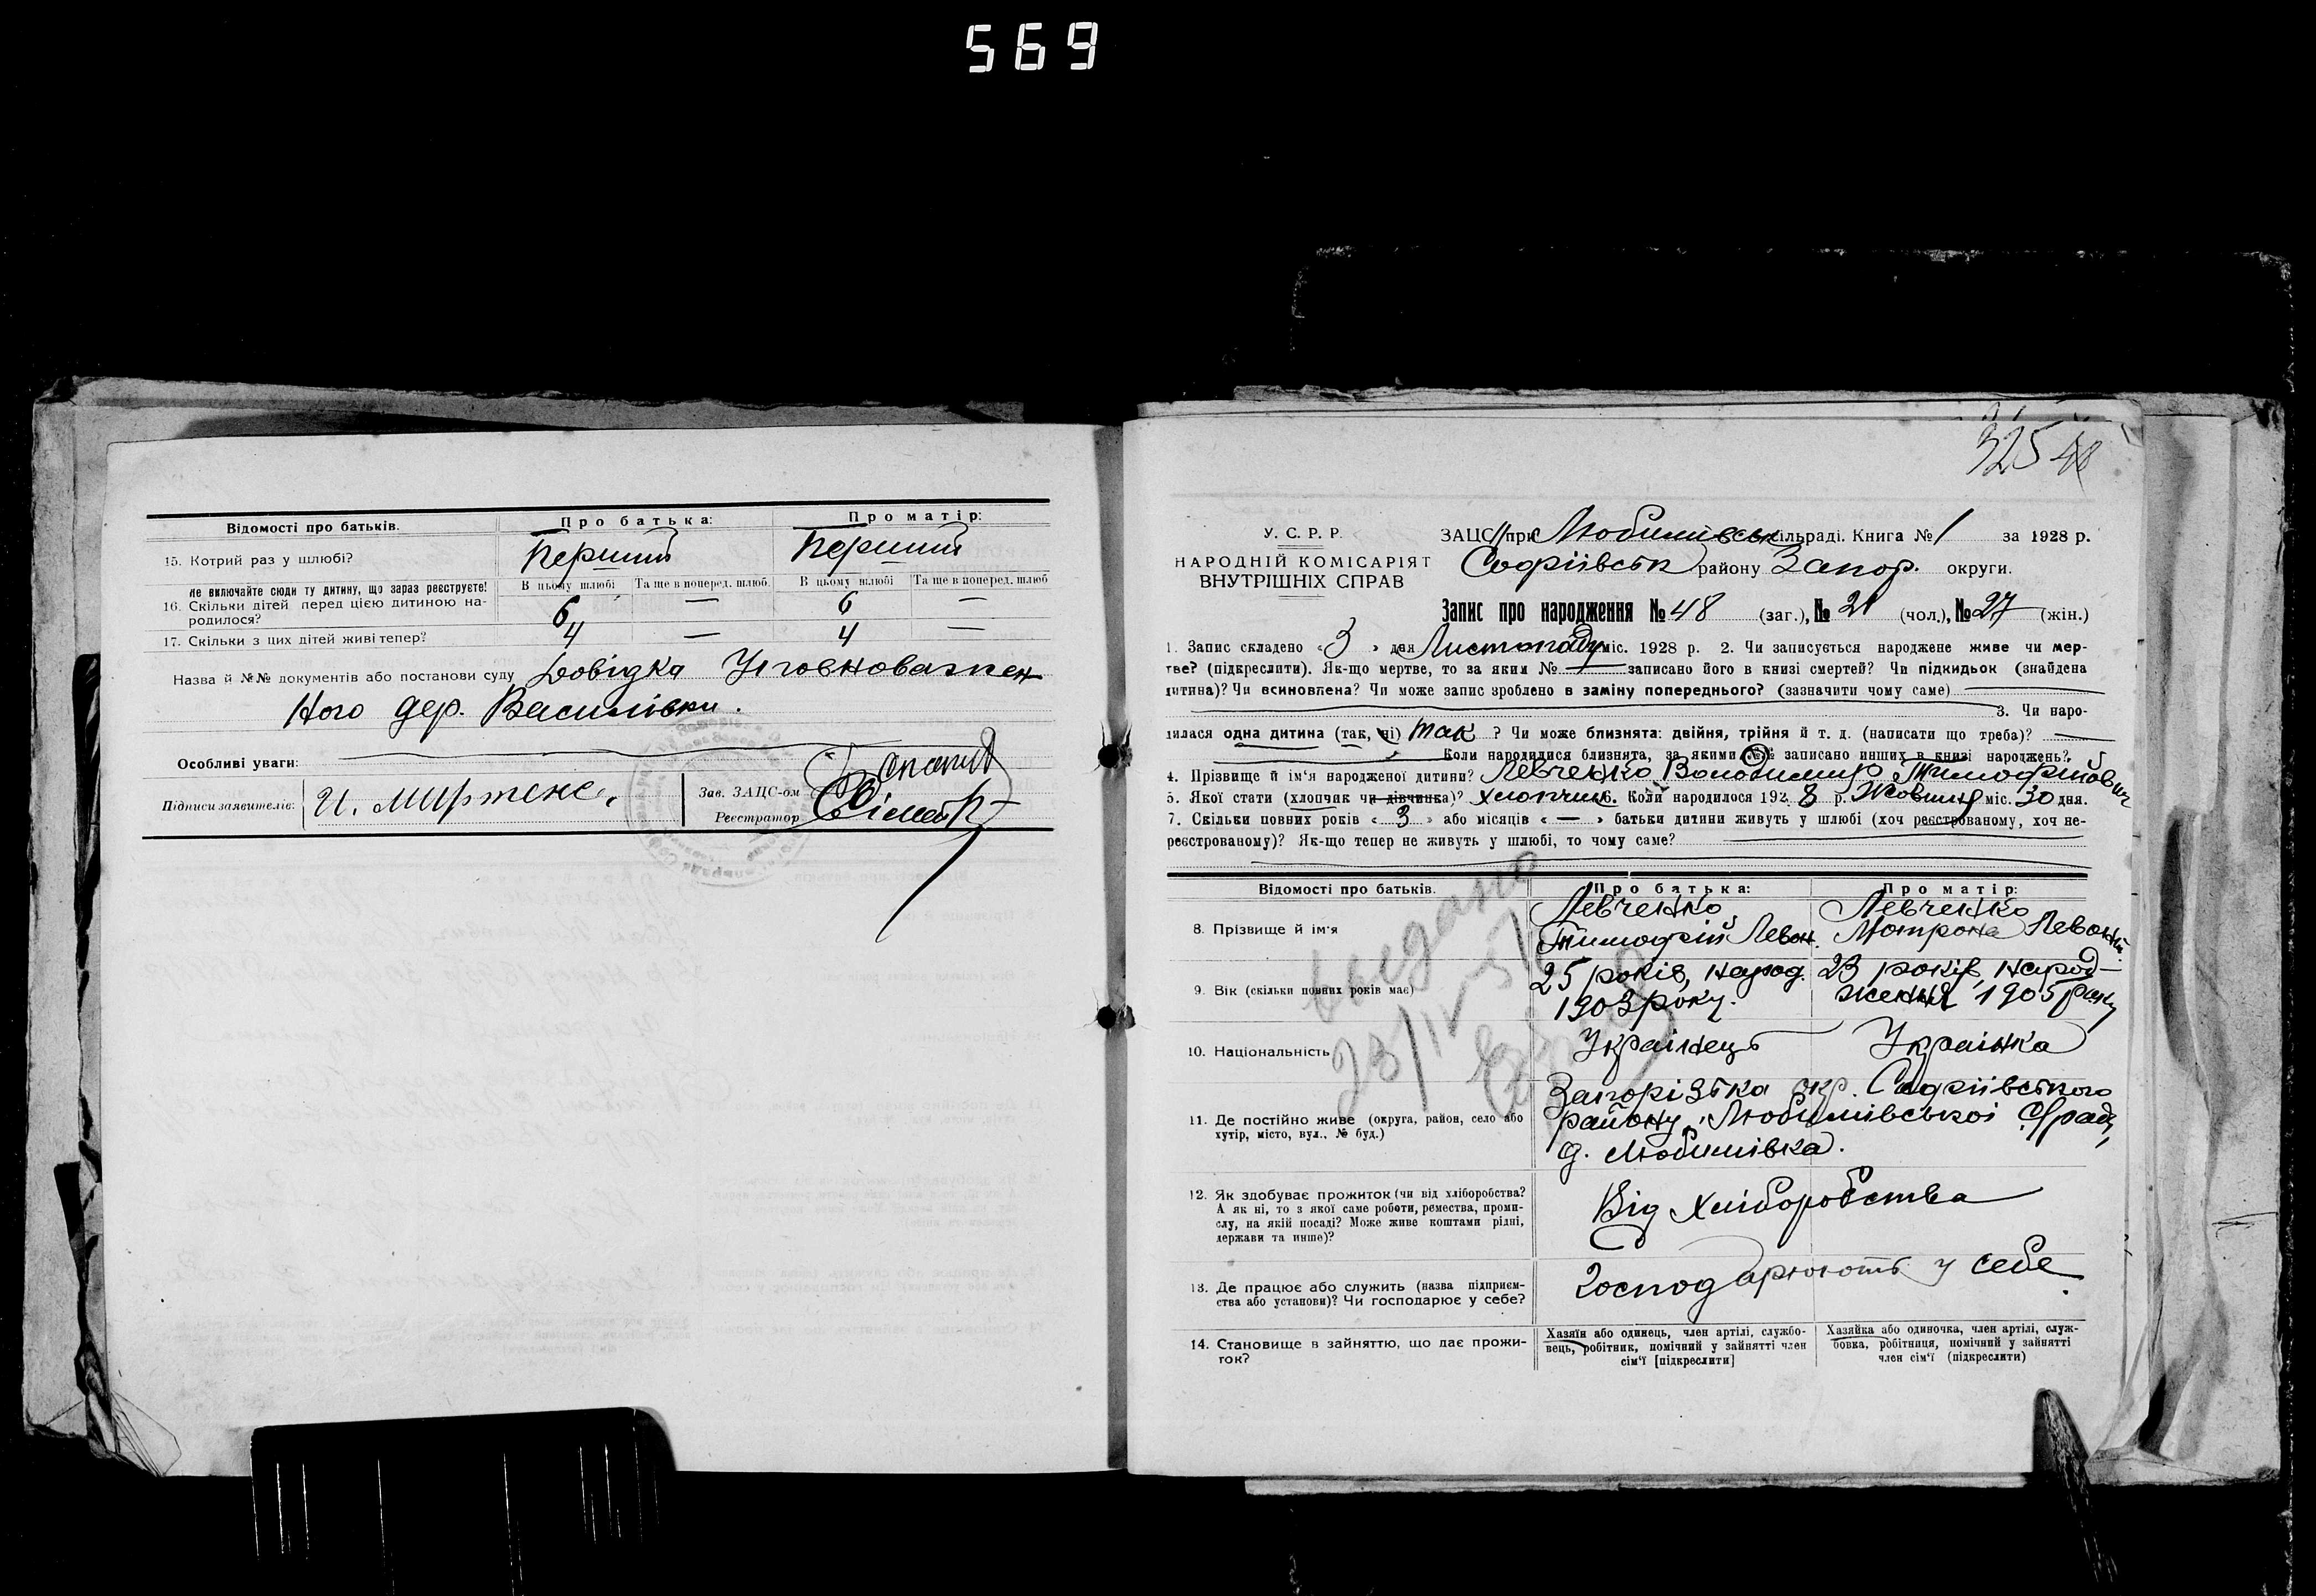 569
Відомості про батьків. Про батька: Про матір:
15. Котрий раз у шлюбі? Перший Перший
Не включайте сюди ту дитину, що зараз реєструєте! В цьому шлюбі Та ще в поперед. шлюб. В цьому шлюбі Та ще в поперед. шлюб
16. Скільки дітей перед цією дитиною на-
родилося? 6 — 6 —
17. Скільки з цих дітей живі тепер? 4 — 4 —
Назва й №№ документів або постанови суду Довідка Уповноважен
ного дер. Василівки.
Особливі уваги:
Підписи заявителів: И. Мартенс. Зав. ЗАЦС-ом
Реєстратор
325 48
У. С. Р. Р.
НАРОДНІЙ КОМІСАРІЯТ
ВНУТРІШНІХ СПРАВ
ЗАЦС при Любимівськ сільраді. Книга № 1 за 1928 р.
Софіївськ району Запор. округи.
Запис про народження № 48 (заг.), № 21 (чол.), № 27 (жін.)
1. Запис складено «3» дня Листопаду міс. 1928 р. 2. Чи записується народжене живе чи мер-
тве? (підкреслити). Як-що мертве, то за яким № — записано його в книзі смертей? Чи підкидьок (знайдена
дитина)? Чи всиновлена? Чи може запис зроблено в заміну попереднього? (зазначити чому саме)
3. Чи наро-
дилася одна дитина (так, ні) так ? Чи може близнята: двійня, трійня й т. д. (написати що треба)? —
Коли народилися близнята, за якими №№ записано инших в книзі народжень?
4. Прізвище й ім'я народженої дитини? Левченко Володимир Тимофійович
5. Якої статі (хлопчак чи дівчинка)? Хлопчик 6. Коли народилося 1928 р. Жовтня міс. 30 дня.
7. Скільки повних років «3» або місяців «—» батьки дитини живуть у шлюбі (хоч реєстрованому, хоч не-
реєстрованому)? Як-що тепер не живуть у шлюбі, то чому саме?
Відомості про батьків. Про батька: Про матір:
8. Прізвище й ім'я Левченко Левченко
Тимофій Левон. Мотрона Левонт.
9. Вік (скільки повних років має) 25 років, народ. 23 років, народ-
1903 року. ження 1905 року
10. Національність Українець Українка
11. Де постійно живе (округа, район, село або
хутір, місто, вул., № буд.)
Запорізька окр. Софіївського
району, Любимівської с/ради,
д. Любимівка.
12. Як здобуває прожиток (чи від хліборобства?
А як ні, то з якої саме роботи, ремества, проми-
слу, на якій посаді? Може живе коштами рідні,
держави та инше)?
Від Хліборобства
13. Де працює або служить (назва підприєм-
ства або установи)? Чи господарює у себе?
Господарюють у себе.
14. Становище в зайняттю, що дає прожи-
ток?
Хазяїн або одинець, член артілі, службо-
вець, робітник, помічний у зайнятті член
сім'ї [підкреслити]
Хазяйка або одиночка, член артілі, служ-
бовка, робітниця, помічний у зайнятті
член сім'ї (підкреслити)